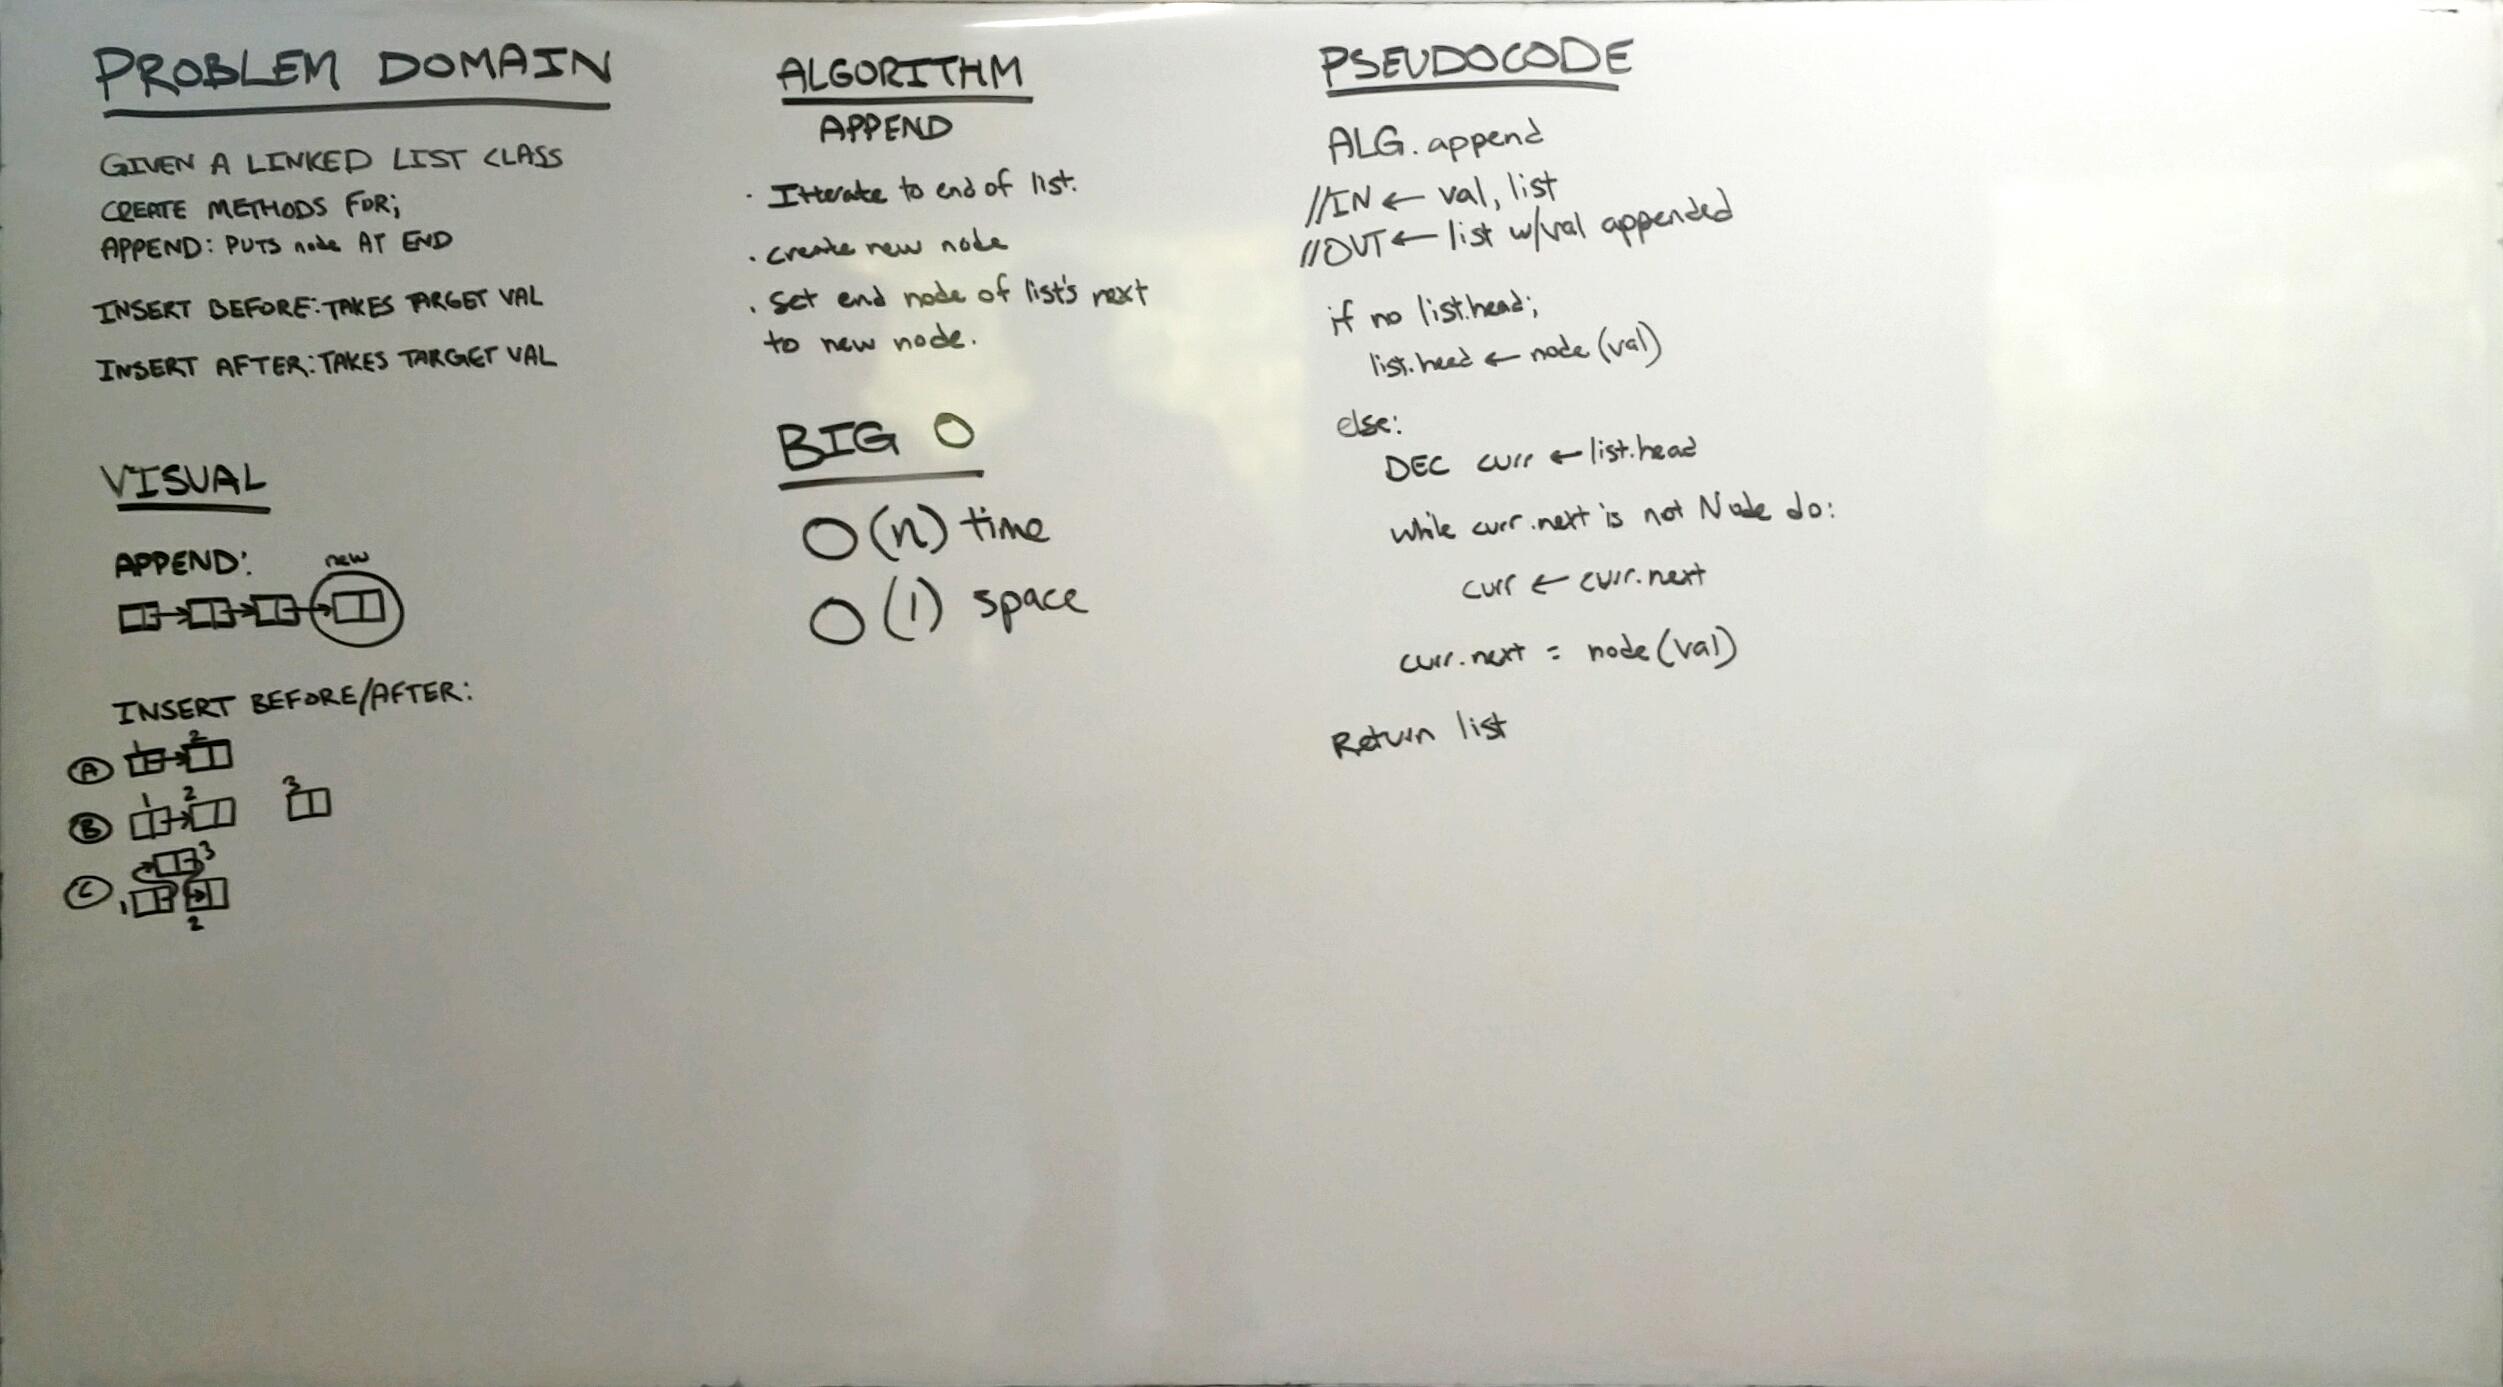 PROBLEM DOMAIN
GIVEN A LINKED LIST CLASS
CREATE METHODS FOR;
APPEND: PUTS node AT END
INSERT BEFORE: TAKES TARGET VAL
INSERT AFTER: TAKES TARGET VAL
VISUAL
APPEND:
new
INSERT BEFORE/AFTER:
A 1 2
B 1 2 3
C 3
1
2
ALGORITHM
APPEND
· Itterate to end of list.
· create new node
· Set end node of list's next
to new node.
BIG O
O(n) time
O(1) space
PSEUDOCODE
ALG. append
//IN ← val, list
//OUT ← list w/val appended
if no list.head;
list.head ← node (val)
else:
DEC curr ← list.head
while curr.next is not Node do:
curr ← curr.next
curr.next = node(val)
Return list